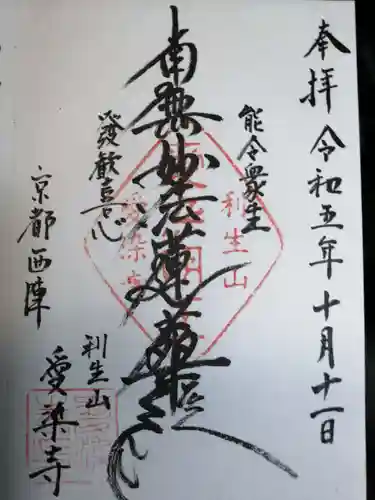 奉拝 令和五年十月十一日
能令衆生
南無妙法蓮華経
發歓喜心
利生山
愛染寺
京都西陣
利生山